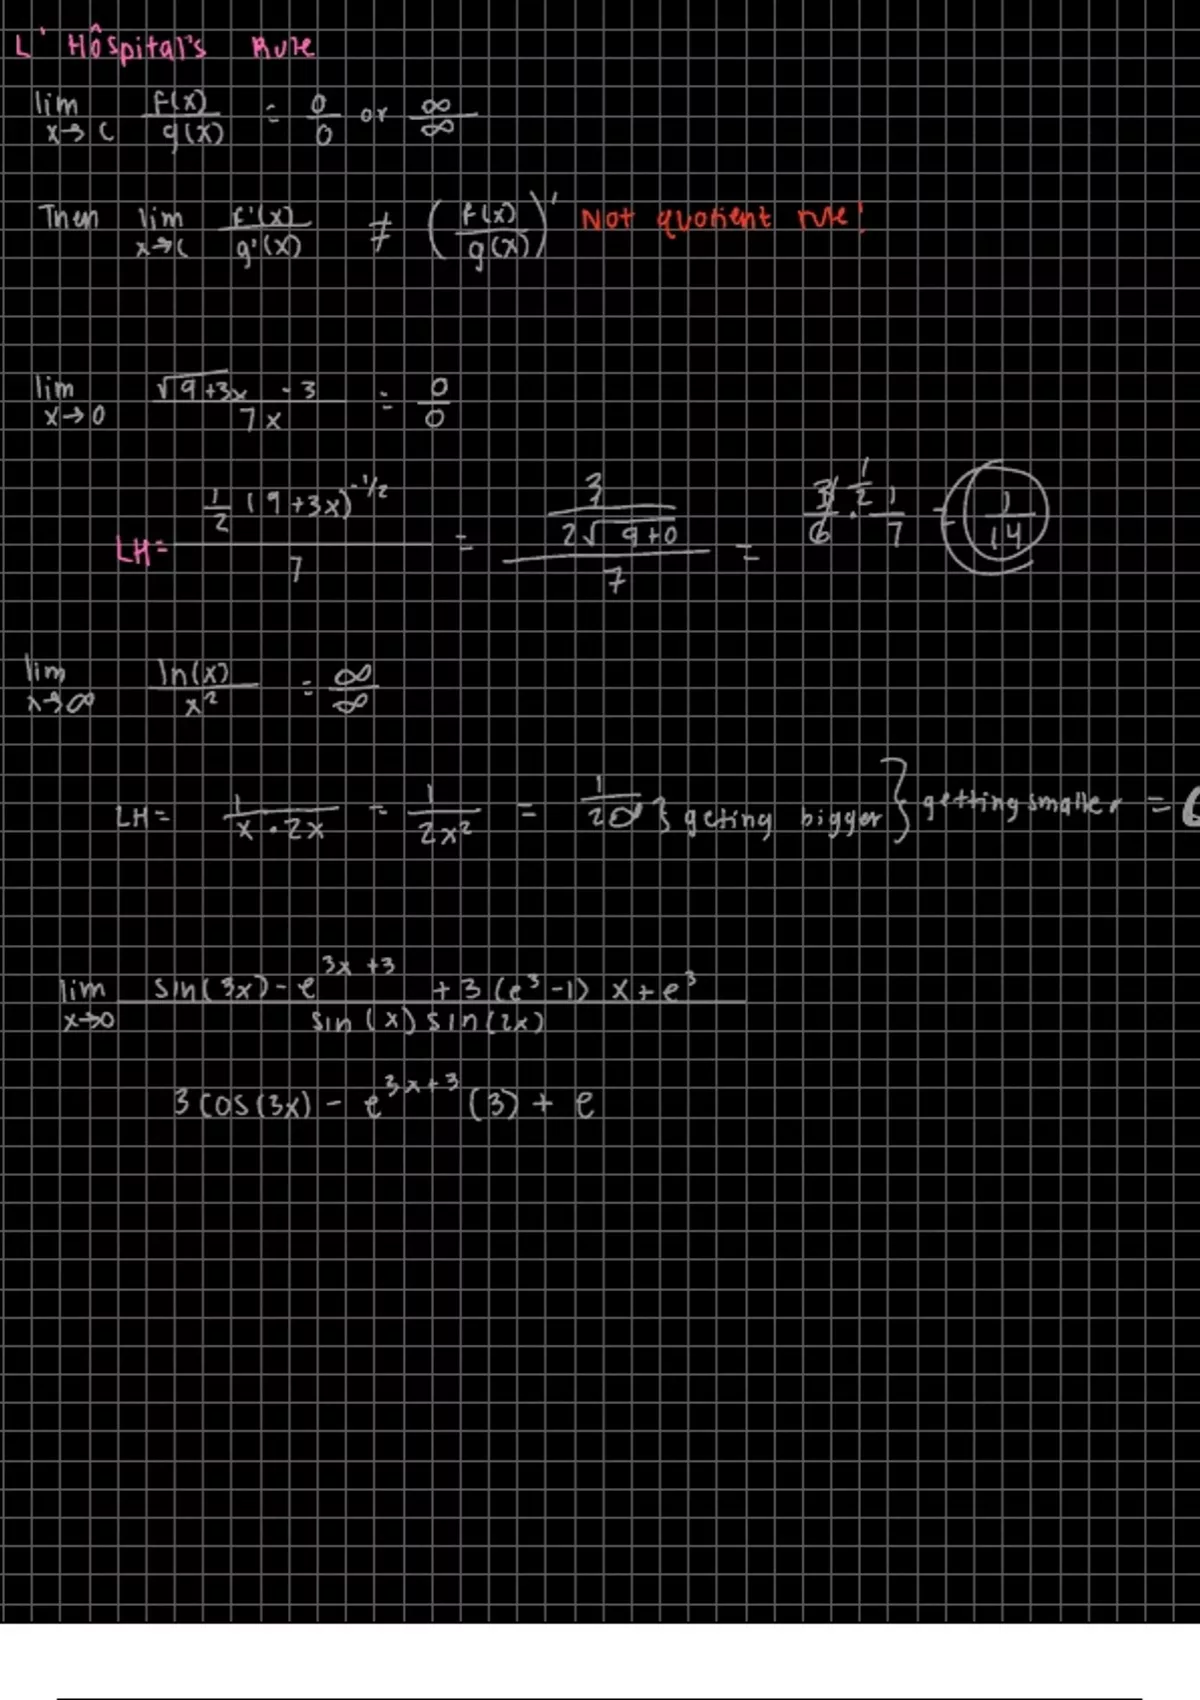 L'Hôspital's Rule
lim x→c f(x)/g(x) = 0/0 or ∞/∞
Then lim x→c f'(x)/g'(x) ≠ (f(x)/g(x))' Not quotient rule!
lim x→0 (√9+3x - 3)/7x = 0/0
LH = (1/2 (9+3x)^-1/2)/7 = (3/(2√9+0))/7 = 3/6 · 1/7 = 1/14
1/2
lim x→∞ ln(x)/x² = ∞/∞
LH = 1/(x·2x) = 1/2x² = 1/2∞ } geting bigger } getting smaller = 0
lim x→0 (sin(3x) - e^(3x+3) + 3(e³-1)x + e³)/(sin(x) sin(2x))
3cos(3x) - e^(3x+3) (3) + e